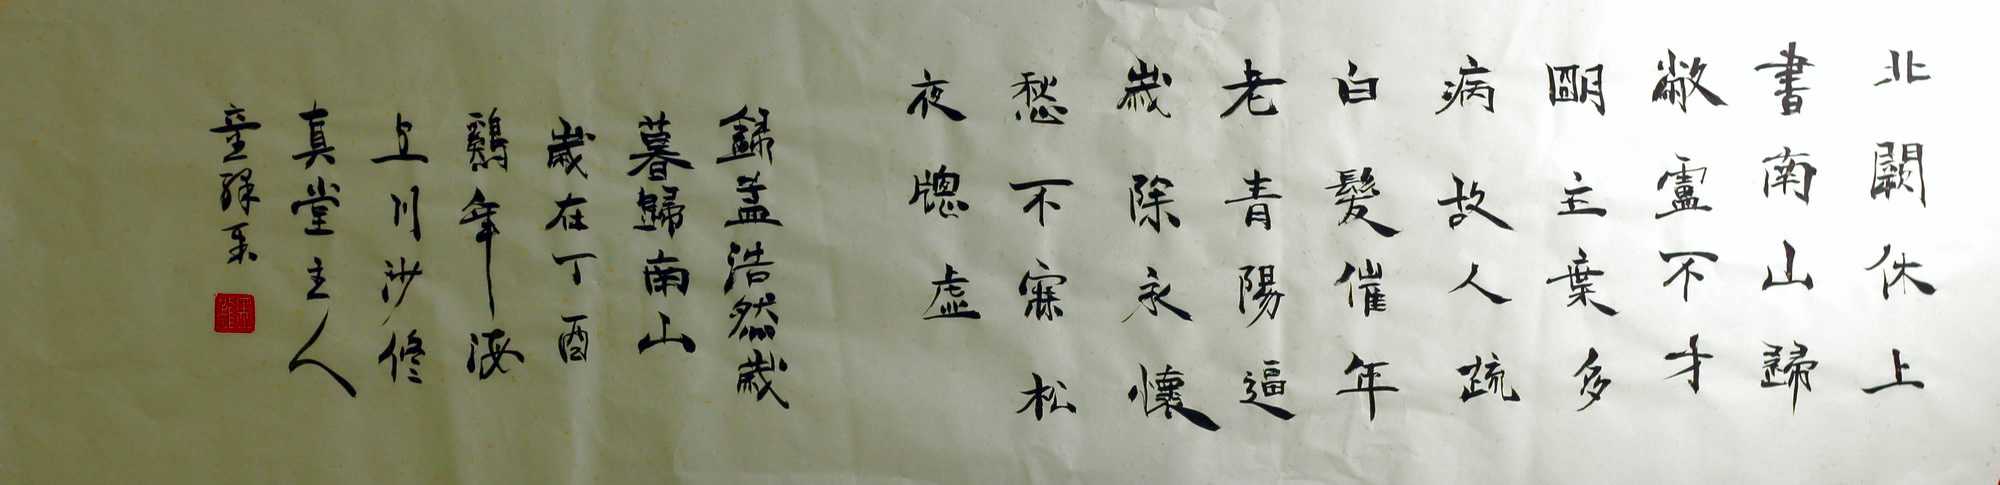 北闕休上
書南山歸
敝廬不才
朙主葉多
病故人疏
白髮催年
老青陽逼
歲除永懷
愁不寐松
夜牕虛
錄孟浩然歲
暮歸南山
歲在丁酉
鷄年海
上川沙修
真堂主人
童